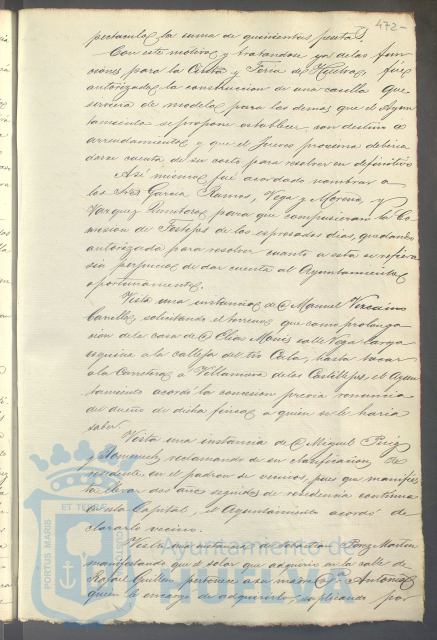 472-
pectaculos la suma de quinientas pesetas
Con este motivo y tratandose ya de las fun
ciones para la Cinta y Feria de Huelva, fué
autorizada la construccion de una casilla que
serviria de modelo para las demas que el Ayun
tamiento se propone establecer con destino a
arrendamientos y que el Jueves proximo deberia
darse cuenta de su costo para resolver en definitivo
Asi mismo fué acordado nombrar a
los Sres Garcia Ramos, Vega y Moreno, y
Vazquez para que compusieran la Co
mision de Festejos de los espresados dias, quedando
autorizada para resolver cuanto a esta se refiera
sin perjuicio de dar cuenta al Ayuntamiento
oportunamente.
Vista una instancia de D. Manuel Vizcaino
solicitando el terreno que como prolonga
sion de la casa de Elias calle Vega Larga
esquina a la calleja del tio Cala, hasta tocar
a la Carretera a Villanueva de los Castillejos, el Ayun
tamiento acordó la concesion previa renuncia
del dueño de dicha finca a quien se le haria
saber.
Vista una instancia de D. Miguel Puig
y Domenech reclamando de su clasificacion de
residente en el padron de vecinos, pues que manifies
ta llevar dos años seguidos de residencia continua
en esta Capital, el Ayuntamiento acordó de
clararlo vecino.
Vista una instancia de Ponz Martin
manifestando que el solar que adquirio en la calle de
Rafael Guillen pertenece a su madre Dª Antonia
quien le encargo de adquirirlo, suplicando por
PORTUS MARIS
ET TERRAE
CUSTODIA
Ayuntamiento de
HUELVA